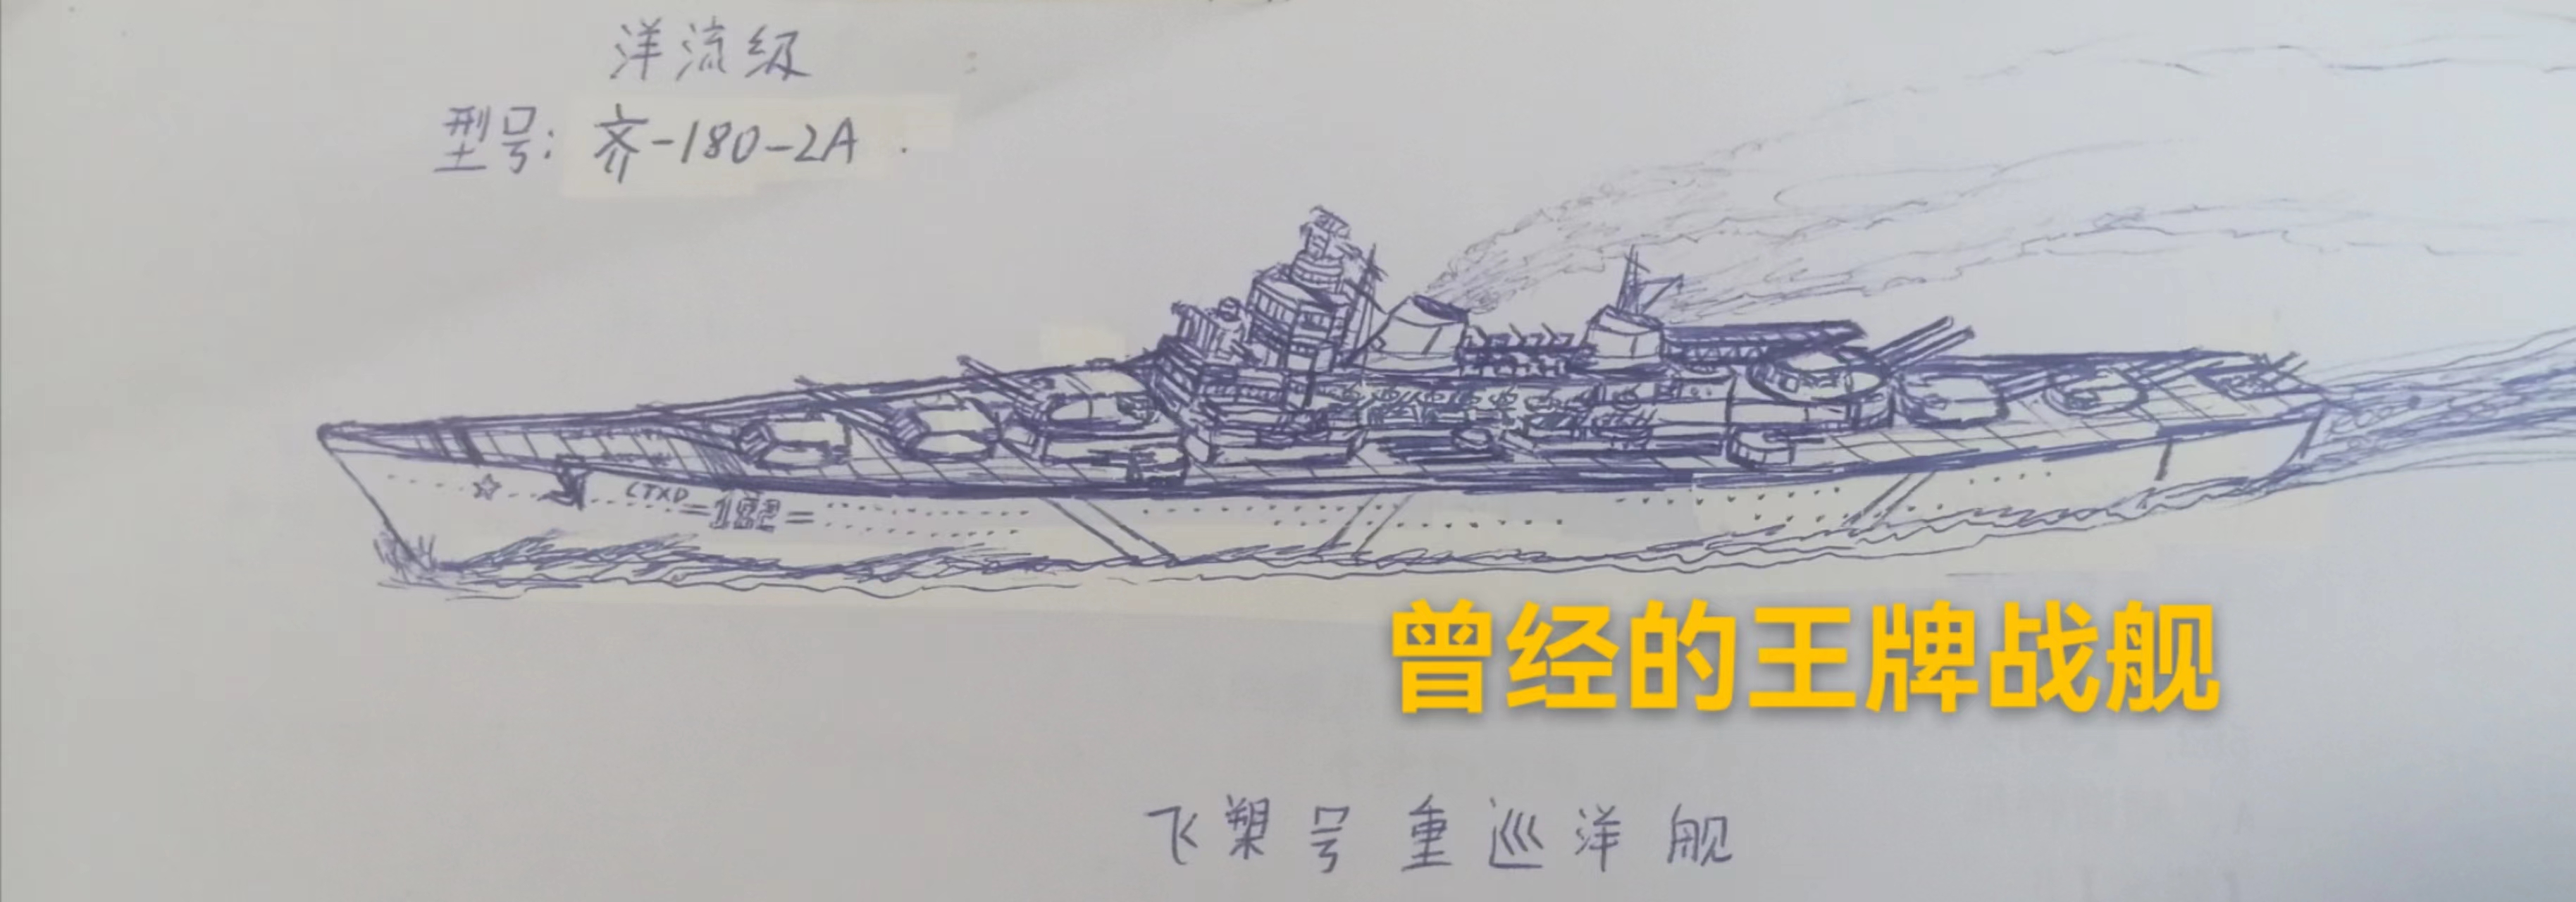 洋流级
型号：齐-180-2A
CTXD
=182=
曾经的王牌战舰
飞槊号重巡洋舰